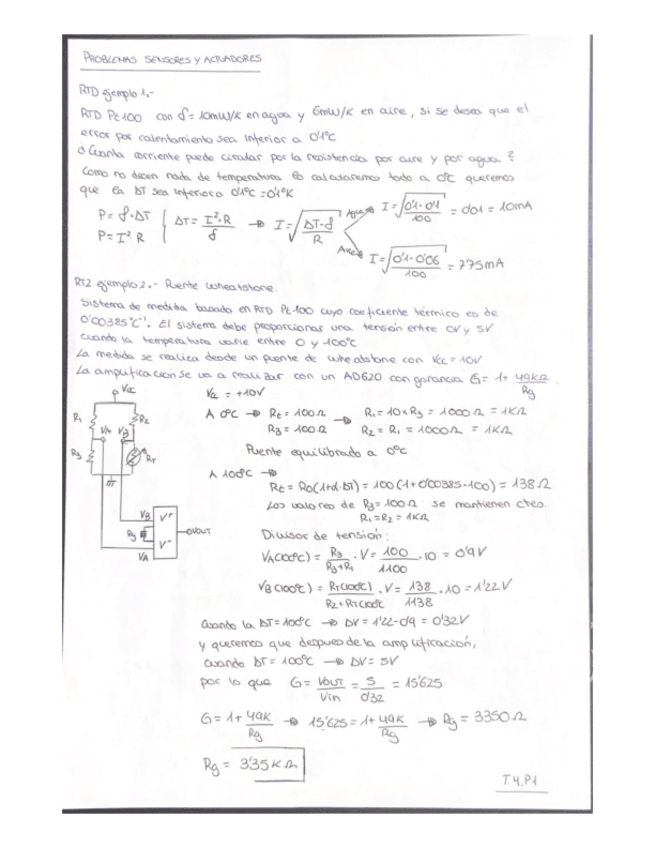 PROBLEMAS SENSORES Y ACTUADORES
RTD ejemplo 1.-
RTD Pt100 con δ = 10mW/K en agua y 6mW/K en aire, si se desea que el
error por calentamiento sea inferior a 0'1ºC
¿Cuanta corriente puede circular por la resistencia por aire y por agua?
Como no dicen nada de temperatura lo calcularemos todo a 0ºC queremos
que la ΔT sea inferior a 0'1ºC = 0'1ºK
P = δ·ΔT
P = I²·R
ΔT = I²·R / δ → I = √(ΔT·δ / R)
Agua I = √(0'1·0'01 / 100) = 0'01 = 10mA
Aire I = √(0'1·0'06 / 100) = 7'75mA
RT2 ejemplo 2.- Puente wheatstone.
Sistema de medida basado en RTD Pt-100 cuyo coeficiente térmico es de
0'00385ºC⁻¹. El sistema debe proporcionar una tensión entre 0V y 5V
cuando la temperatura varie entre 0 y 100ºC
La medida se realiza desde un puente de wheatstone con Vcc = 10V
La amplificación se va a realizar con un AD620 con ganancia G = 1 + 49kΩ / Rg
Vcc
R1
R2
VA VB
R3
RT
VB V+
Rg
VOUT
V-
VA
Vcc = +10V
A 0ºC → Rt = 100Ω
R3 = 100Ω
→ R1 = 10×R3 = 1000Ω = 1KΩ
R2 = R1 = 1000Ω = 1KΩ
Puente equilibrado a 0ºC
A 100ºC →
Rt = R0(1+α·ΔT) = 100(1+0'00385·100) = 138Ω
Los valores de R3 = 100Ω se mantienen cteo.
R1 = R2 = 1KΩ
Divisor de tensión:
VA(100ºC) = R3 / (R3+R1) · V = 100 / 1100 · 10 = 0'9V
VB(100ºC) = RT(100ºC) / (R2+RT(100ºC)) · V = 138 / 1138 · 10 = 1'22V
Cuando la ΔT = 100ºC → ΔV = 1'22-0'9 = 0'32V
y queremos que despues de la amplificación,
cuando ΔT = 100ºC → ΔV = 5V
por lo que G = Vout / Vin = 5 / 0'32 = 15'625
G = 1 + 49K / Rg → 15'625 = 1 + 49K / Rg → Rg = 3350Ω
Rg = 3'35KΩ
T.4.P1